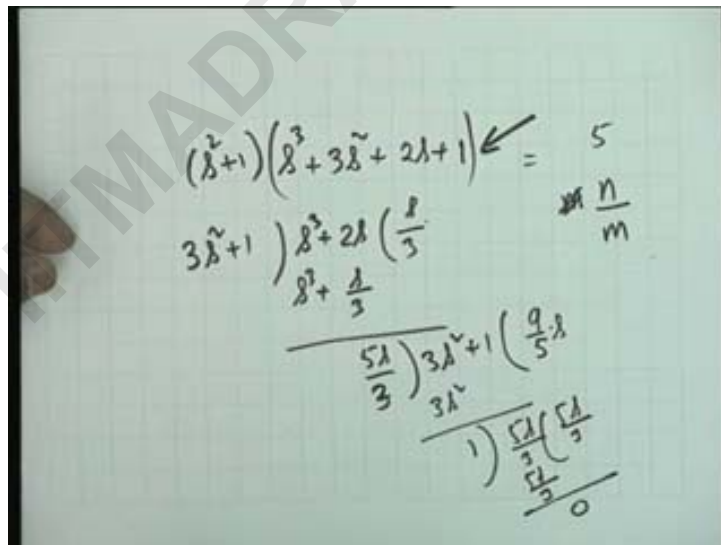 IITMADRA
(s²+1)(s³+3s²+2s+1) = 5
n/m
3s²+1 ) s³+2s ( s/3
s³+ s/3
5s/3 ) 3s²+1 ( 9/5·s
3s²
1 ) 5s/3 ( 5s/3
5s/3
0